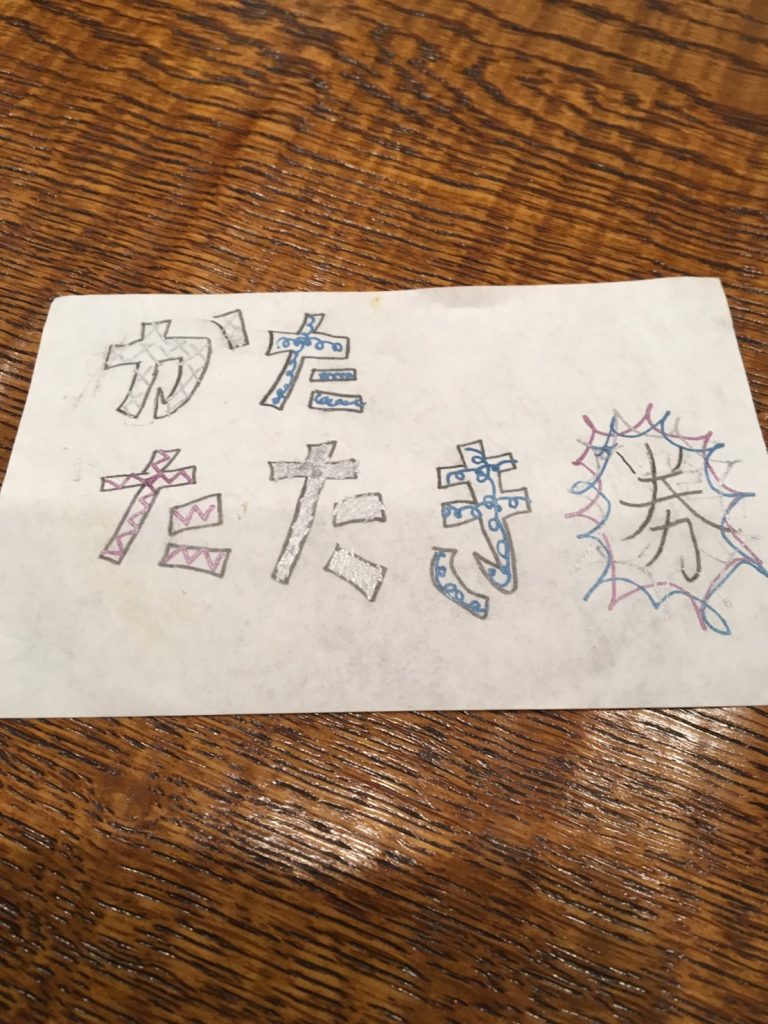 かた
たたき券